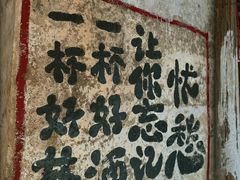 一杯好茶
一杯好酒
让你忘记
忧愁